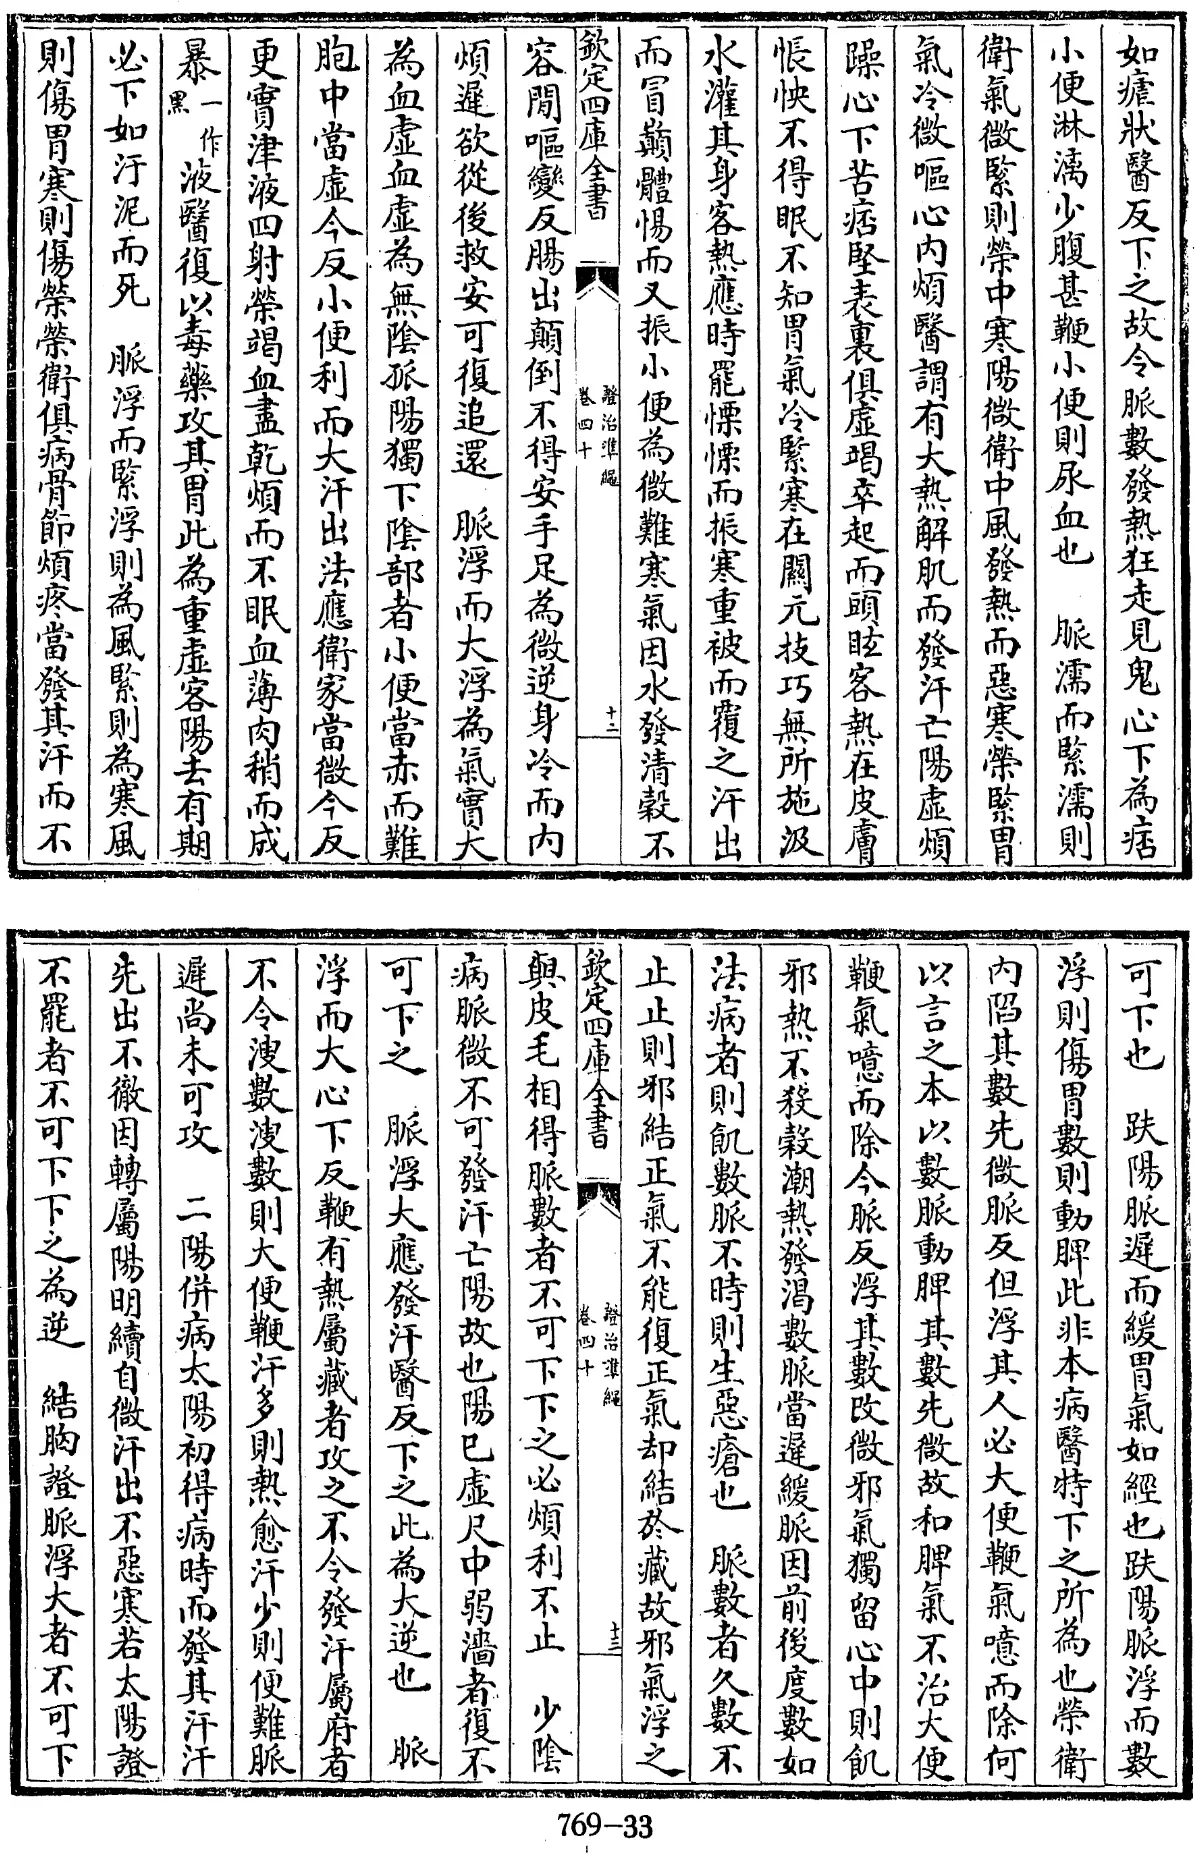 如瘧狀醫反下之故令脈數發熱狂走見鬼心下為痞
小便淋漓少腹甚鞕小便則尿血也　脈濡而緊濡則
衛氣微緊則榮中寒陽微衛中風發熱而惡寒榮緊胃
氣冷微嘔心內煩醫謂有大熱解肌而發汗亡陽虛煩
躁心下苦痞堅表裏俱虛竭卒起而頭眩客熱在皮膚
悵怏不得眠不知胃氣冷緊寒在關元技巧無所施汲
水灌其身客熱應時罷慄慄而振寒重被而覆之汗出
而冒巔體惕而又振小便為微難寒氣因水發清穀不
欽定四庫全書
證治準繩
卷四十
十二
容閒嘔變反腸出顛倒不得安手足為微逆身冷而內
煩遲欲從後救安可復追還　脈浮而大浮為氣實大
為血虛血虛為無陰孤陽獨下陰部者小便當赤而難
胞中當虛今反小便利而大汗出法應衛家當微今反
更實津液四射榮竭血盡乾煩而不眠血薄肉稍而成
暴一作黑液醫復以毒藥攻其胃此為重虛客陽去有期
必下如汙泥而死　脈浮而緊浮則為風緊則為寒風
則傷胃寒則傷榮榮衛俱病骨節煩疼當發其汗而不
可下也　趺陽脈遲而緩胃氣如經也趺陽脈浮而數
浮則傷胃數則動脾此非本病醫特下之所為也榮衛
內陷其數先微脈反但浮其人必大便鞕氣噫而除何
以言之本以數脈動脾其數先微故和脾氣不治大便
鞕氣噫而除今脈反浮其數改微邪氣獨留心中則飢
邪熱不殺穀潮熱發渴數脈當遲緩脈因前後度數如
法病者則飢數脈不時則生惡瘡也　脈數者久數不
止止則邪結正氣不能復正氣却結於藏故邪氣浮之
欽定四庫全書
證治準繩
卷四十
十三
與皮毛相得脈數者不可下下之必煩利不止　少陰
病脈微不可發汗亡陽故也陽已虛尺中弱濇者復不
可下之　脈浮大應發汗醫反下之此為大逆也　脈
浮而大心下反鞕有熱屬藏者攻之不令發汗屬府者
不令溲數溲數則大便鞕汗多則熱愈汗少則便難脈
遲尚未可攻　二陽併病太陽初得病時而發其汗汗
先出不徹因轉屬陽明續自微汗出不惡寒若太陽證
不罷者不可下下之為逆　結胸證脈浮大者不可下
769-33